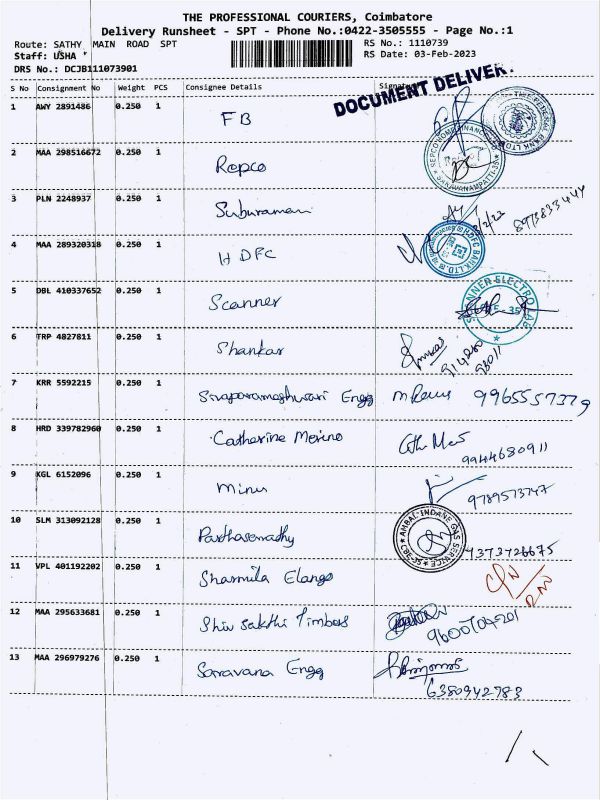 THE PROFESSIONAL COURIERS, Coimbatore
Delivery Runsheet - SPT - Phone No.:0422-3505555 - Page No.:1
Route: SATHY MAIN ROAD SPT RS No.: 1110739
Staff: USHA * RS Date: 03-Feb-2023
DRS No.: DCJB111073901
S No Consignment No Weight PCS Consignee Details Signature
DOCUMENT DELIVER.
1 AWY 2891486 0.250 1 FB
2 MAA 298516672 0.250 1 Repco
SARAVANAMPATTI-35
3 PLN 2248937 0.250 1 Suburamani 8973833444
4 MAA 289320318 0.250 1 HDFC
HDFC BANK LTD.
5 DBL 410337652 0.250 1 Scanner
SCANNER ELECTRO LAB
6 TRP 4827811 0.250 1 Shankar
7 KRR 5592215 0.250 1 Sivaparameshwari Engg 9965557379
8 HRD 339782960 0.250 1 Catherine Merino 9944680911
9 KGL 6152096 0.250 1 Minu 9789573747
10 SLM 313092128 0.250 1 Parthasarathy
AMBAL INDANE GAS SERVICE
11 VPL 401192202 0.250 1 Sharmila Elango
12 MAA 295633681 0.250 1 Shiv Sakthi Timbers
13 MAA 296979276 0.250 1 Saravana Engg 6380942783